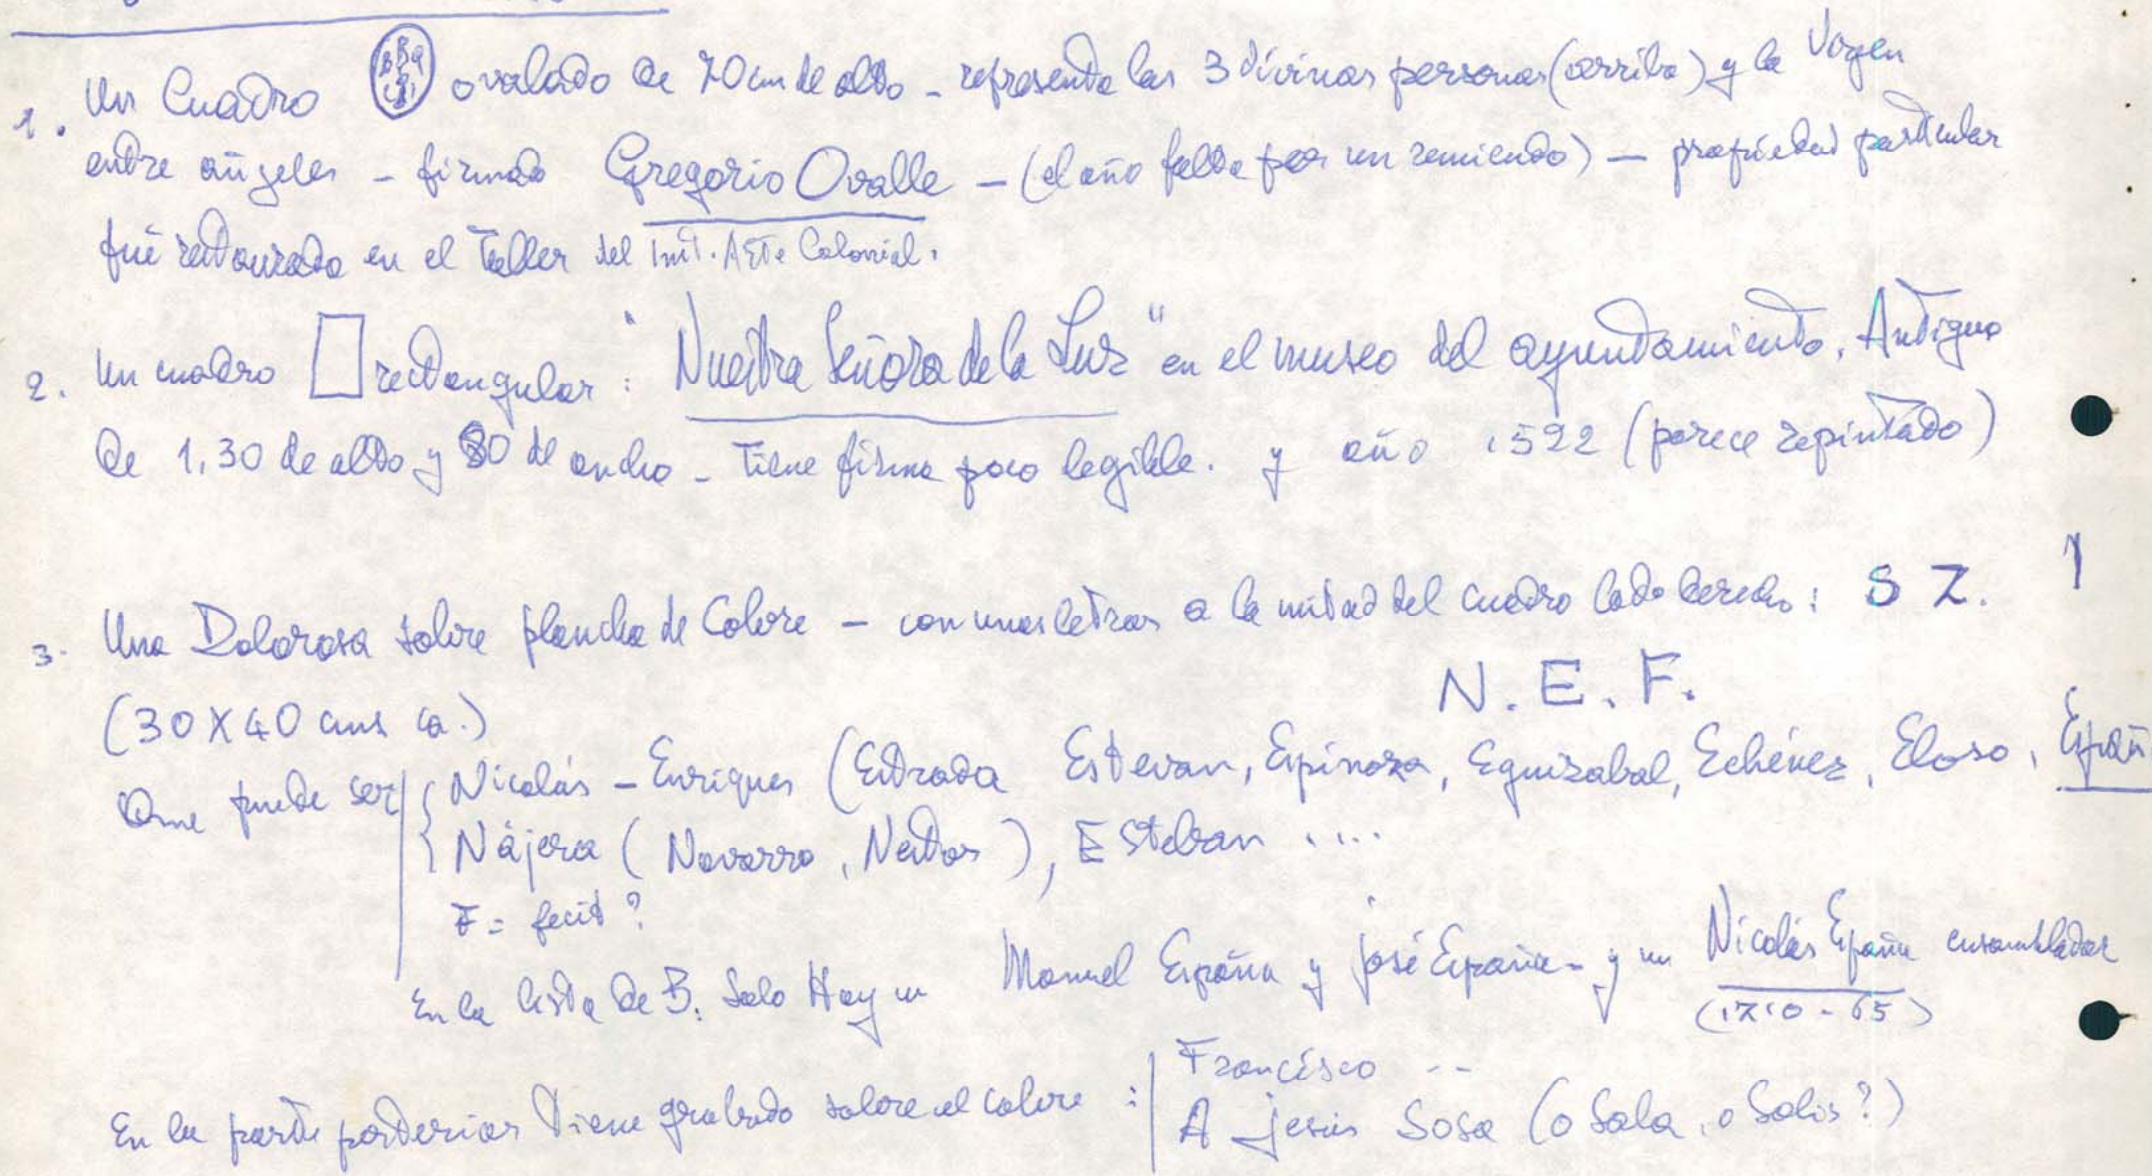 1. Un Cuadro ovalado de 70 cm de alto - representa las 3 divinas personas (arriba) y la Virgen
entre ángeles - firmado Gregorio Ovalle - (el año falta por un remiendo) - propiedad particular
fué restaurado en el Taller del Inst. Arte Colonial.
2. Un cuadro rectangular: "Nuestra Señora de la Luz" en el museo del ayuntamiento. Antigua
de 1,30 de alto y 80 de ancho - Tiene firma poco legible. y año 1522 (parece repintado)
3. Una Dolorosa sobre plancha de Cobre - con unas letras a la mitad del cuadro lado derecho: S Z. 1
N. E. F.
(30 X 40 cms ca.)
Que puede ser Nicolás - Enriques (Estrada Estevan, Espinoza, Eguizabal, Echévez, Eloso, Españ
Nájera (Navarro, Nestor), Esteban ....
F = fecit?
En la lista de B. Solo Hay un Manuel España y José España - y un Nicolás España ensamblador
(1710 - 65)
En la parte posterior Tiene grabado sobre el cobre: Francisco --
A Jesús Sosa (o Sala, o Solis?)